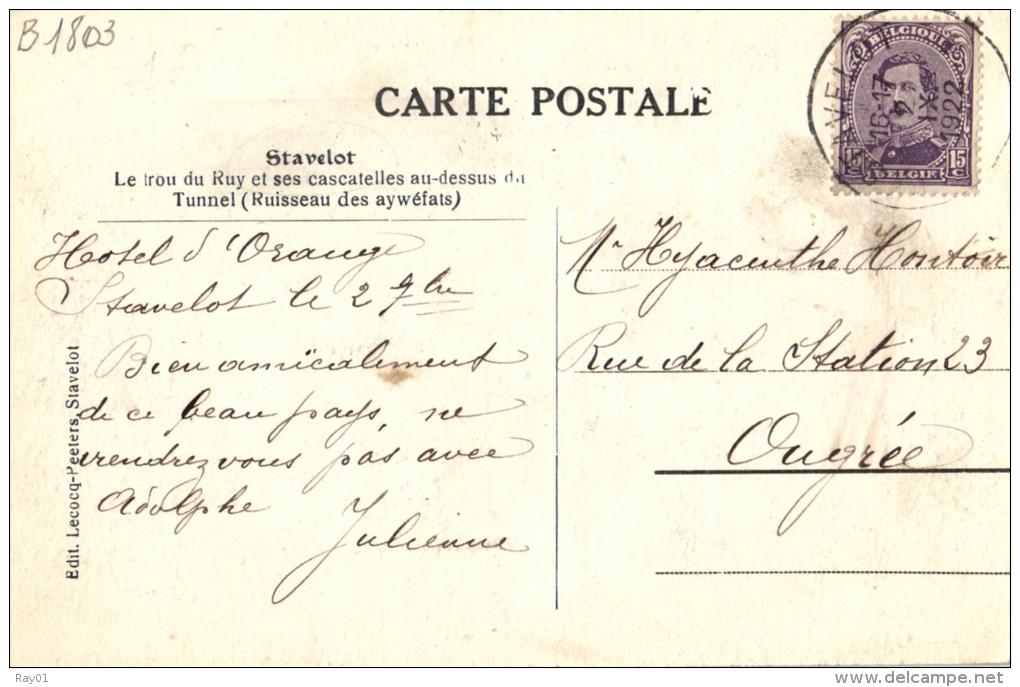 B1803
CARTE POSTALE
Stavelot
Le trou du Ruy et ses cascatelles au-dessus du
Tunnel (Ruisseau des aywéfats)
BELGIQUE
15 15
C
BELGIË
16-17
2
IX
1922
Hotel d'Orange
Stavelot le 2 9bre
Bien amicalement
de ce beau pays, ne
viendrez vous pas avec
Adolphe
Julienne
Mr Hyacinthe Hontoir
Rue de la Station 23
Ougrée
Edit. Lecocq-Peeters, Stavelot
Ray01
www.delcampe.net